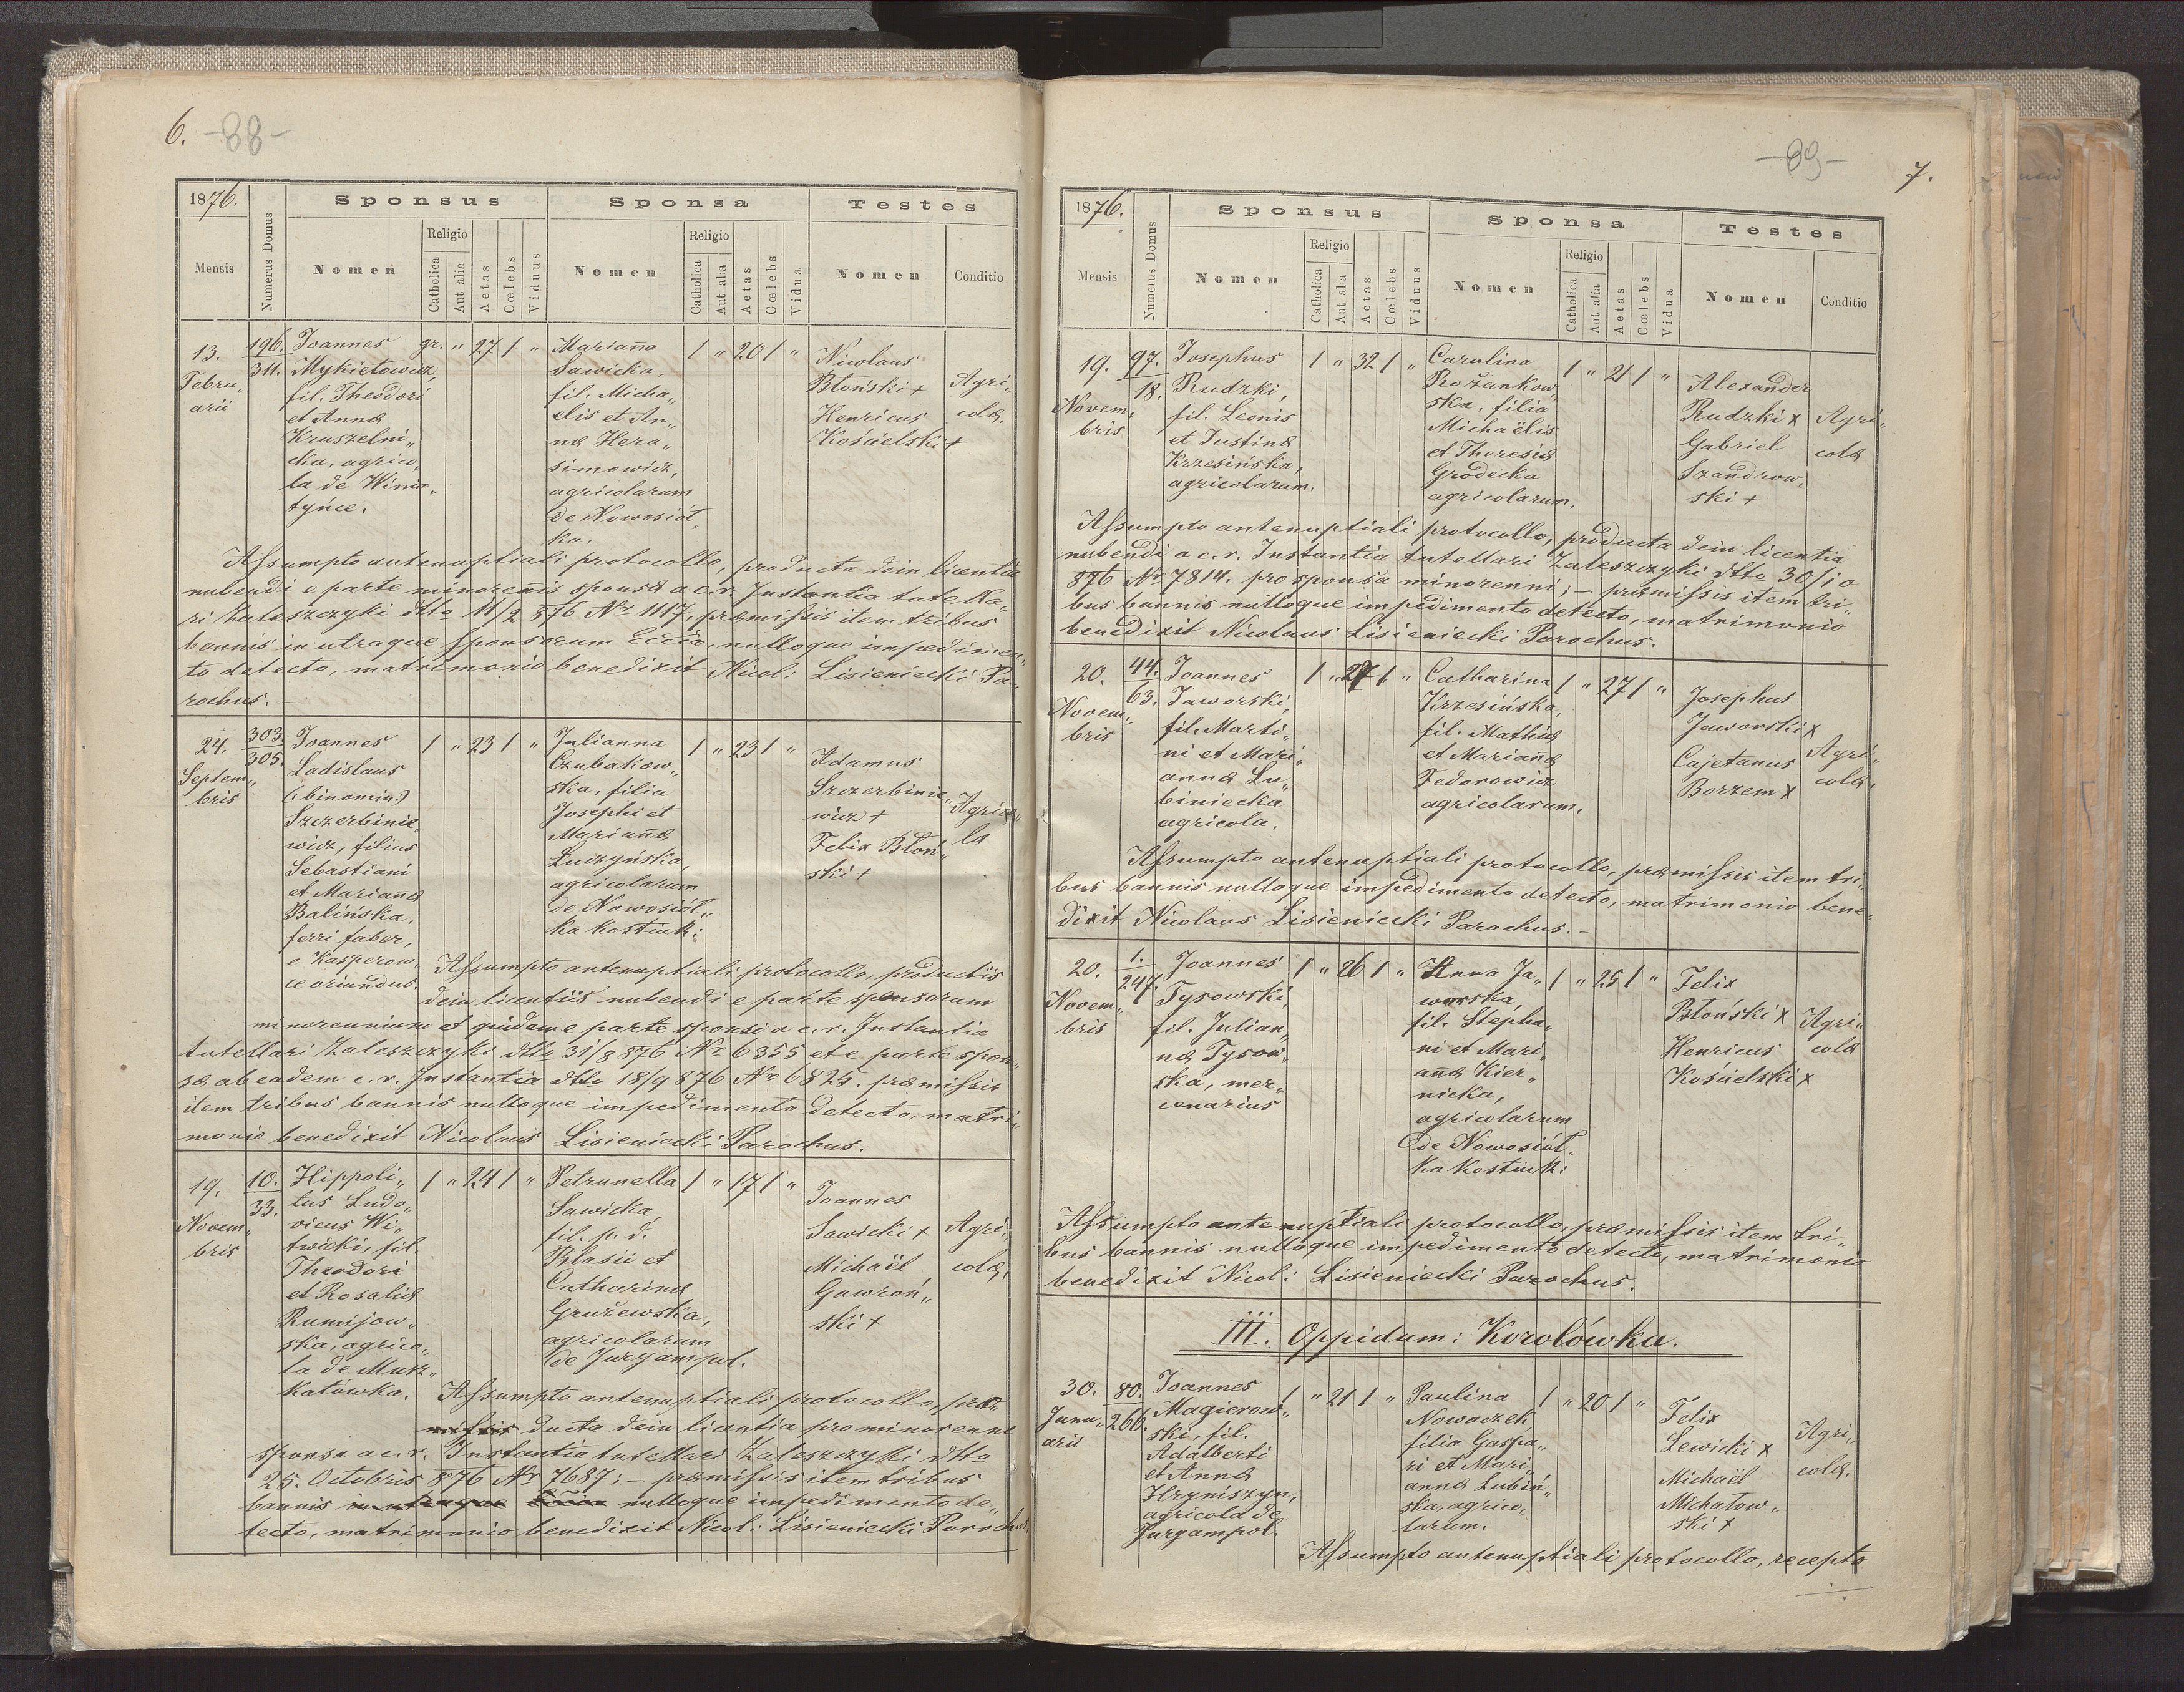 6. -88-
1876.
Sponsus
Sponsa
Testes
Mensis
Numerus Domus
Nomen
Religio
Catholica
Aut alia
Aetas
Cœlebs
Viduus
Nomen
Religio
Catholica
Aut alia
Aetas
Cœlebs
Vidua
Nomen
Conditio
13.
Febru„
arii
196.
311.
Joannes
Mykietowicz,
fil. Theodori
et Annæ
Kruszelni„
cka, agrico„
la de Winia„
tyńce.
gr. „ 27 1 „
Marianna
Sawicka,
fil. Micha„
elis et An„
næ Hera„
simowicz,
agricolarum
de Nowosiół„
ka.
1 „ 20 1 „
Nicolaus
Błoński +
Henricus
Kościelski +
Agri„
colæ.
Assumpto antenuptiali protocollo, producta dein licentia
nubendi e parte minorenis sponsæ a c. r. Instantia tutella„
ri Zaleszczyki dtto 11/2 876 Nr 1117, præmissis item tribus
bannis in utraque sponsorum Ecclia, nulloque impedimen„
to detecto, matrimonio benedixit Nicol: Lisieniecki Pa„
rochus. —
24.
Septem„
bris
303.
305.
Joannes
Ladislaus
(:binomin:)
Szczerbinie„
wicz, filius
Sebastiani
et Mariannæ
Balińska,
ferri faber,
e Kasperow„
ce oriundus.
1 „ 23 1 „
Julianna
Czubakow„
ska, filia
Josephi et
Mariannæ
Luczyńska,
agricolarum
de Nowosiół„
ka kostiuk:
1 „ 23 1 „
Adamus
Szczerbinie„
wicz +
Felix Błoń„
ski +
Agrico„
læ
Assumpto antenuptiali protocollo, productiis
dein licentiis nubendi e parte sponsorum
minorennium et quidem e parte sponsi a c. r. Instantia
tutellari Zaleszczyki dtto 31/8 876 Nr 6355 et e parte spon„
sæ ab eadem c. r. Instantia dtto 18/9 876 Nr 6825. præmissis
item tribus bannis nulloque impedimento detecto, matri„
monio benedixit Nicolaus Lisieniecki Parochus.
19.
Novem„
bris
10.
33.
Hippoli„
tus Ludo„
vicus Wi„
twicki, fil.
Theodori
et Rosaliæ
Rumijow„
ska, agrico„
la de Musz„
katówka.
1 „ 24 1 „
Petrunella
Sawicka,
fil. p. d.
Blasii et
Catharinæ
Gružewska,
agricolarum
de Jurjampol.
1 „ 17 1 „
Joannes
Sawicki +
Michaël
Gawroń„
ski +
Agri„
colæ.
Assumpto antenuptiali protocollo, pro„
ducta dein licentia pro minorenne
sponsa a c. r. Instantia tutellari Zaleszczyki dtto
25. Octobris 876 Nr 7687; — præmissis item tribus
bannis in utraque nulloque impedimento de„
tecto, matrimonio benedixit Nicol: Lisieniecki Parochus
-89- 7.
1876.
Sponsus
Sponsa
Testes
Mensis
Numerus Domus
Nomen
Religio
Catholica
Aut alia
Aetas
Cœlebs
Viduus
Nomen
Religio
Catholica
Aut alia
Aetas
Cœlebs
Vidua
Nomen
Conditio
19.
Novem„
bris
97.
18.
Josephus
Rudzki,
fil. Leonis
et Justinæ
Krzesińska,
agricolarum.
1 „ 32 1 „
Carolina
Rožankow„
ska, filia
Michaëlis
et Theresiæ
Grodecka
agricolarum.
1 „ 21 1 „
Alexander
Rudzki x
Gabriel
Szandrow„
ski +
Agri„
colæ
Assumpto antenuptiali protocollo, producta dein licentia
nubendi a c. r. Instantia tutellari Zaleszczyki dtto 30/10
876 Nr 7814. pro sponsa minorenni; — præmissis item tri„
bus bannis nulloque impedimento detecto, matrimonio
benedixit Nicolaus Lisieniecki Parochus.
20.
Novem„
bris
44.
63.
Joannes
Jaworski,
fil. Marti„
ni et Mari„
annæ Lu„
biniecka
agricola.
1 „ 27 1 „
Catharina
Krzesińska,
fil. Mathiæ
et Mariannæ
Fedorowicz
agricolarum.
1 „ 27 1 „
Josephus
Jaworski x
Cajetanus
Borzem x
Agri„
colæ.
Assumpto antenuptiali protocollo, præmissis item tri„
bus bannis nulloque impedimento detecto, matrimonio bene„
dixit Nicolaus Lisieniecki Parochus. —
20.
Novem„
bris
1.
247.
Joannes
Tysowski,
fil. Julian„
næ Tysow„
ska, mer„
cenarius
1 „ 26 1 „
Anna Ja„
worska,
fil. Stepha„
ni et Mari„
annæ Kier„
nicka,
agricolarum
de Nowosiół„
ka kostiuk:
1 „ 25 1 „
Felix
Błoński x
Henricus
Kościelski x
Agri„
colæ
Assumpto antenuptiali protocollo, præmissis item tri„
bus bannis nulloque impedimento detecto, matrimonio
benedixit Nicol: Lisieniecki Parochus.
III. Oppidum: Korolówka.
30.
Janu„
arii
80.
266.
Joannes
Magierow„
ski, fil.
Adalberti
et Annæ
Hryniszyn,
agricola de
Jurgampol.
1 „ 21 1 „
Paulina
Nowaczek
filia Gaspa„
ri et Mari„
annæ Lubiń„
ska, agrico„
larum.
1 „ 20 1 „
Felix
Lewicki x
Michaël
Michałow„
ski x
Agri„
colæ.
Assumpto antenuptiali protocollo, recepto